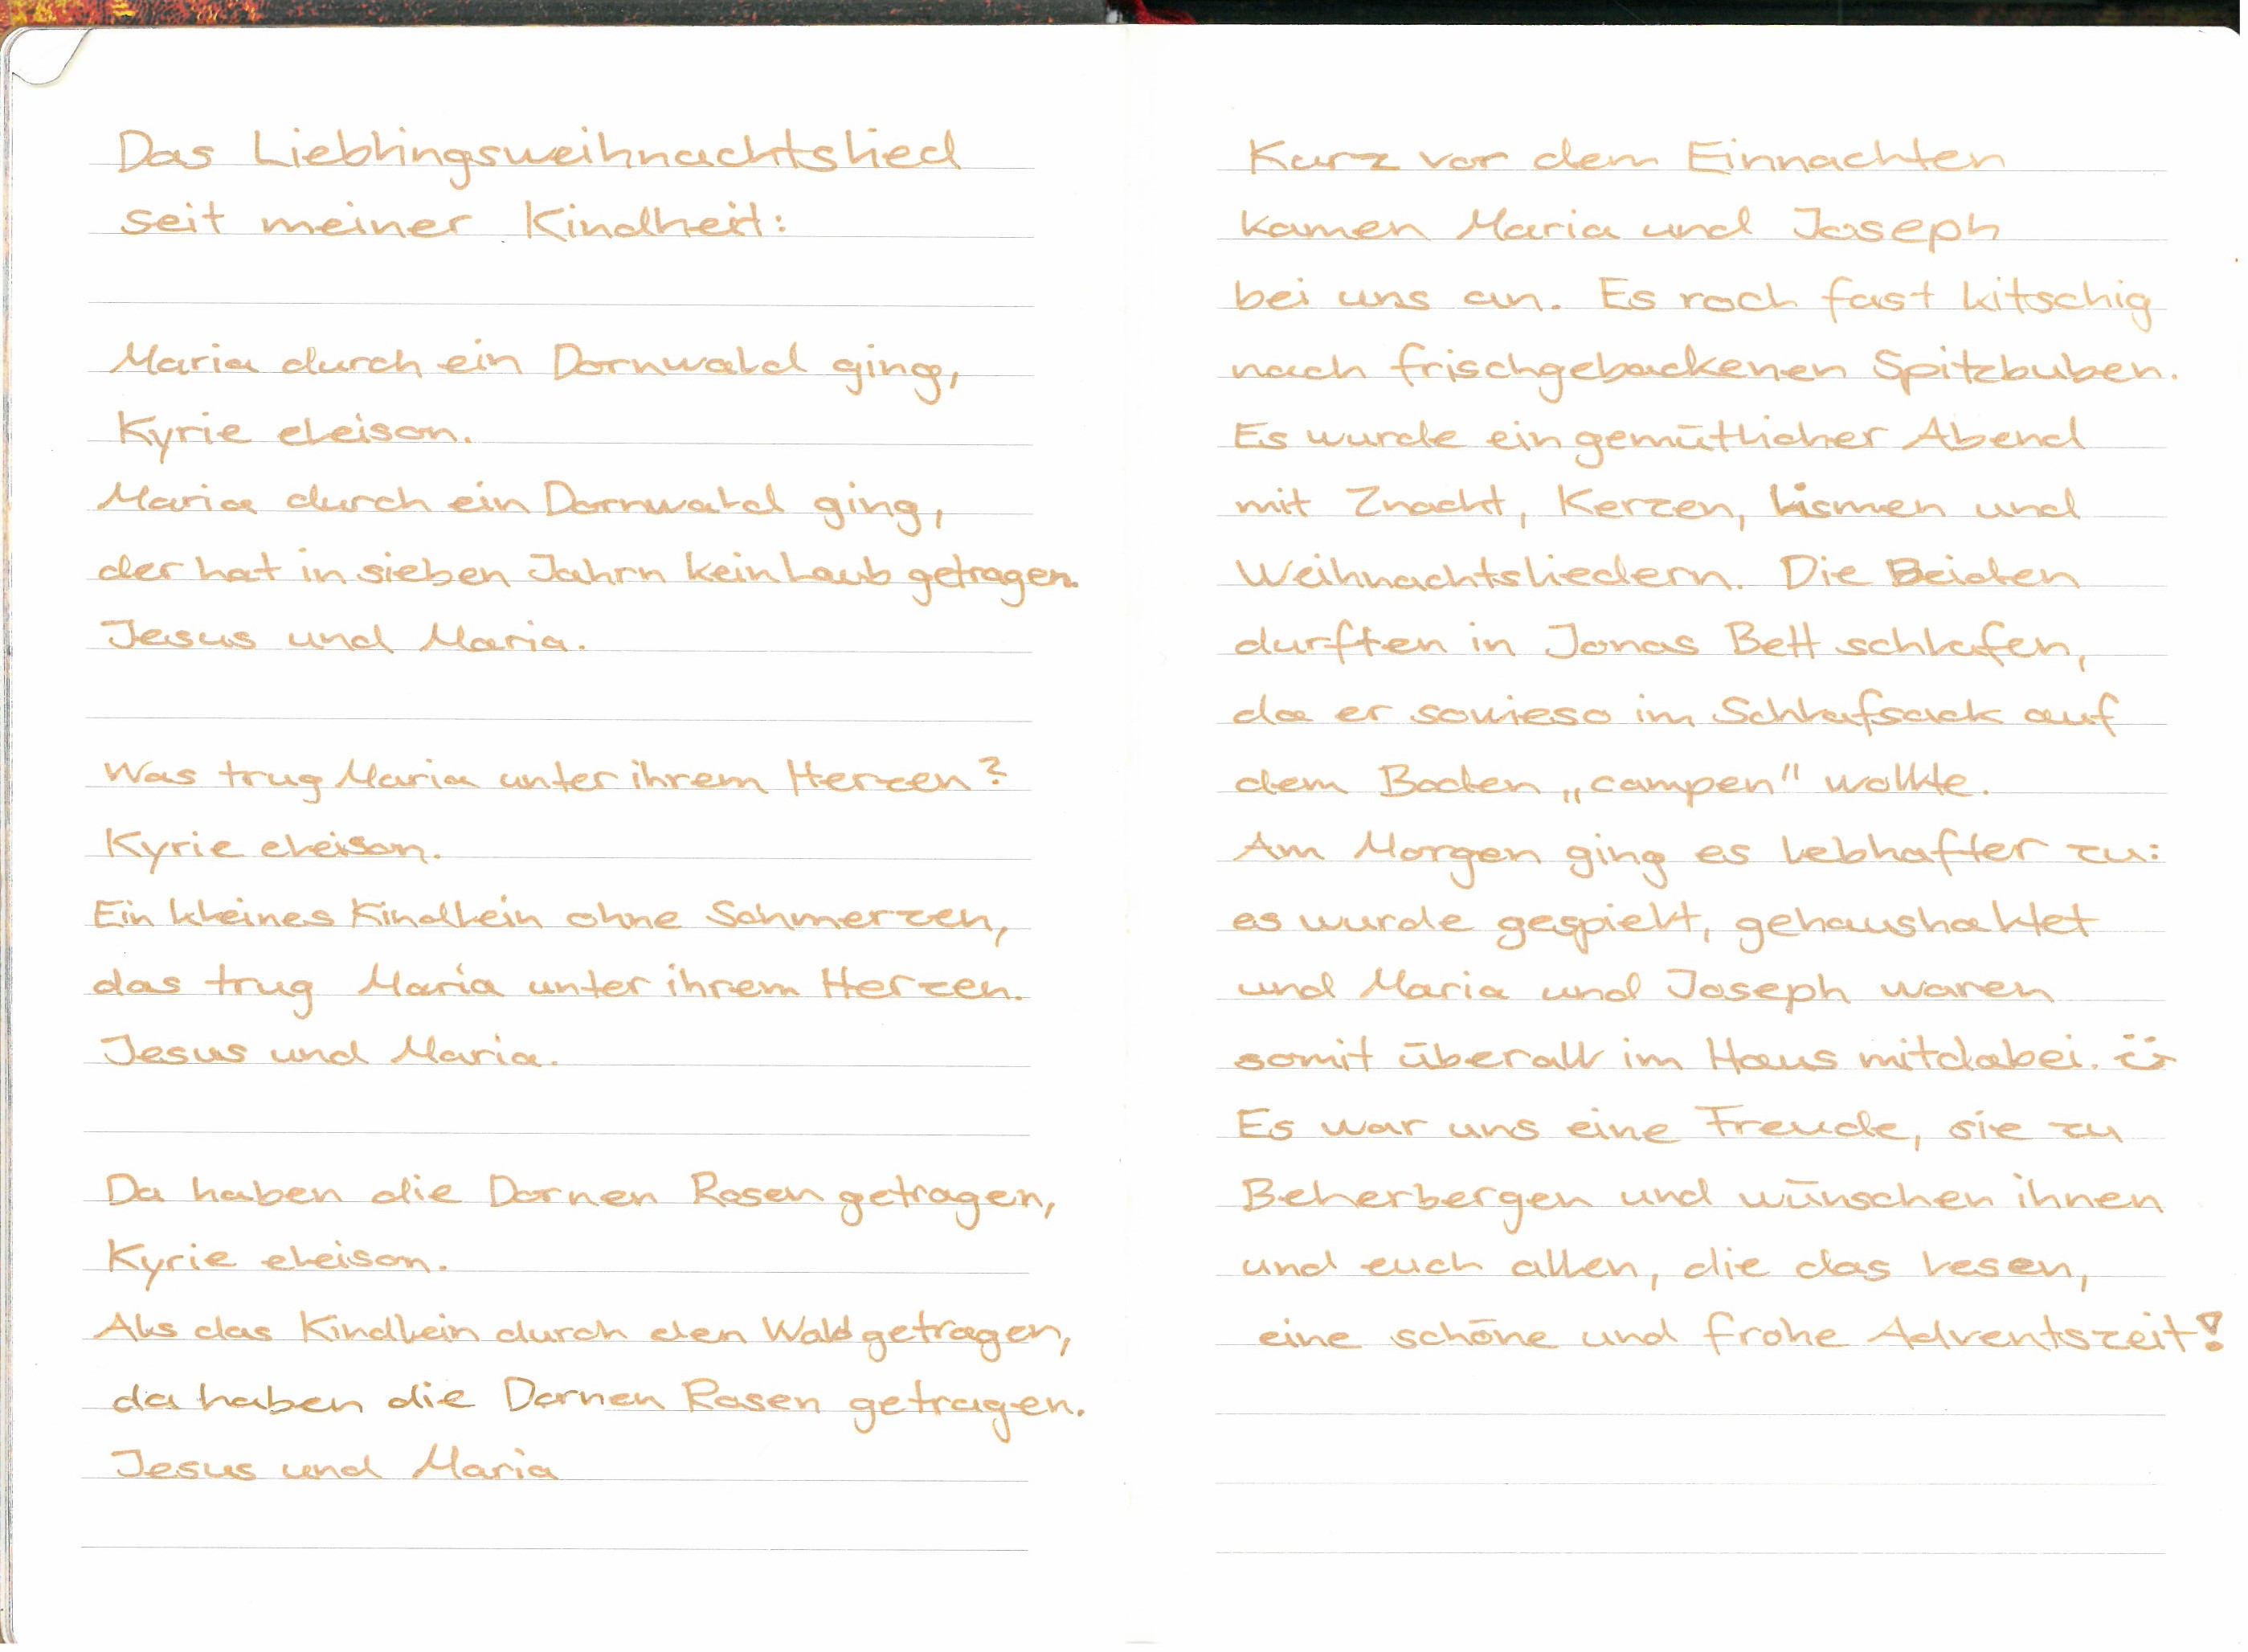 Das Lieblingsweihnachtslied
seit meiner Kindheit:
Maria durch ein Dornwald ging,
Kyrie eleison.
Maria durch ein Dornwald ging,
der hat in sieben Jahrn kein Laub getragen.
Jesus und Maria.
Was trug Maria unter ihrem Herzen?
Kyrie eleison.
Ein kleines Kindlein ohne Schmerzen,
das trug Maria unter ihrem Herzen.
Jesus und Maria.
Da haben die Dornen Rosen getragen,
Kyrie eleison.
Als das Kindlein durch den Wald getragen,
da haben die Dornen Rosen getragen.
Jesus und Maria
Kurz vor dem Einnachten
kamen Maria und Joseph
bei uns an. Es roch fast kitschig
nach frischgebackenen Spitzbuben.
Es wurde ein gemütlicher Abend
mit Znacht, Kerzen, lismen und
Weihnachtsliedern. Die Beiden
durften in Jonas Bett schlafen,
da er sowieso im Schlafsack auf
dem Boden „campen" wollte.
Am Morgen ging es lebhafter zu:
es wurde gespielt, gehaushaltet
und Maria und Joseph waren
somit überall im Haus mitdabei. ü
Es war uns eine Freude, sie zu
Beherbergen und wünschen ihnen
und euch allen, die das lesen,
eine schöne und frohe Adventszeit!